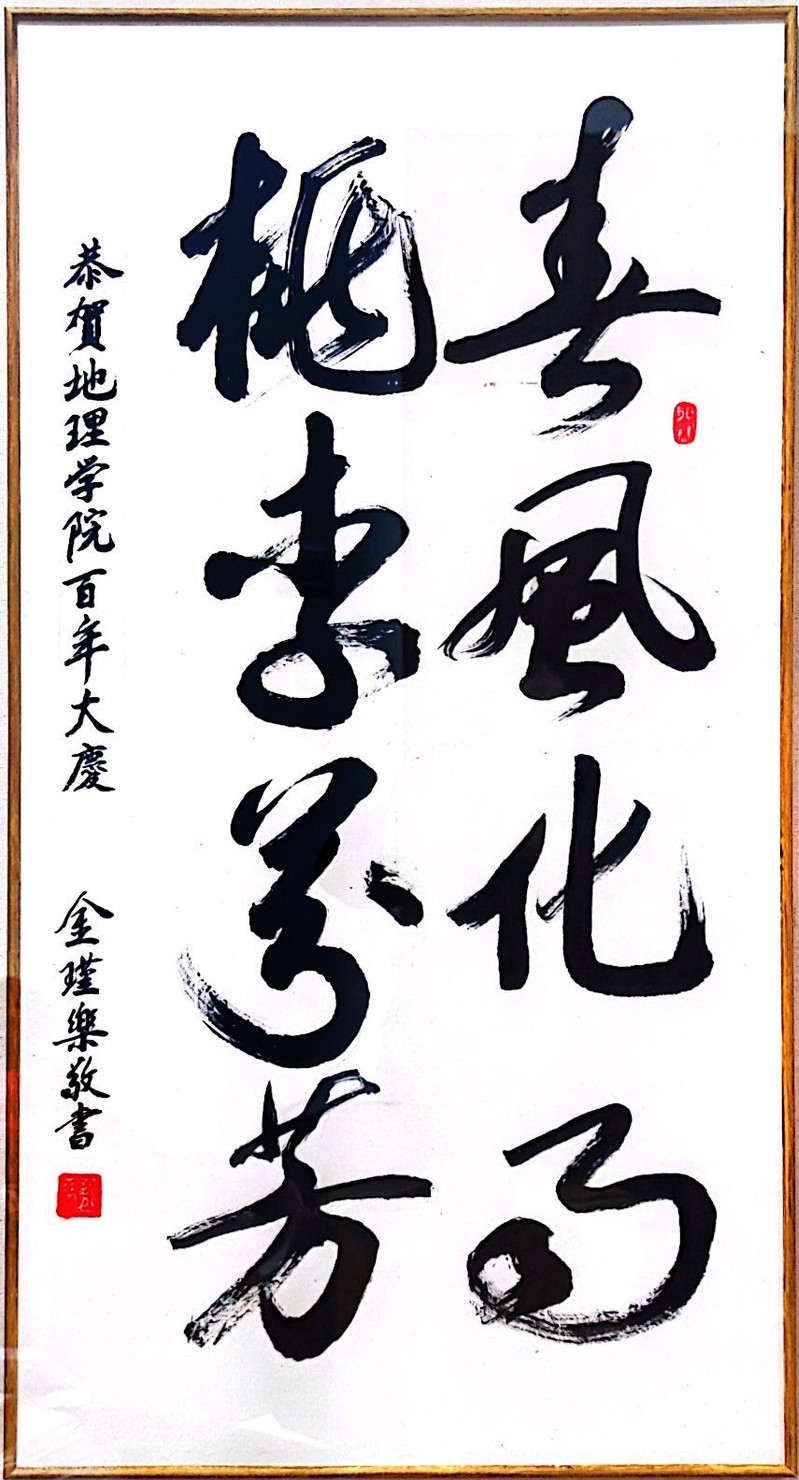 春風化雨
桃李芬芳
恭賀地理学院百年大慶
金瑾樂敬書